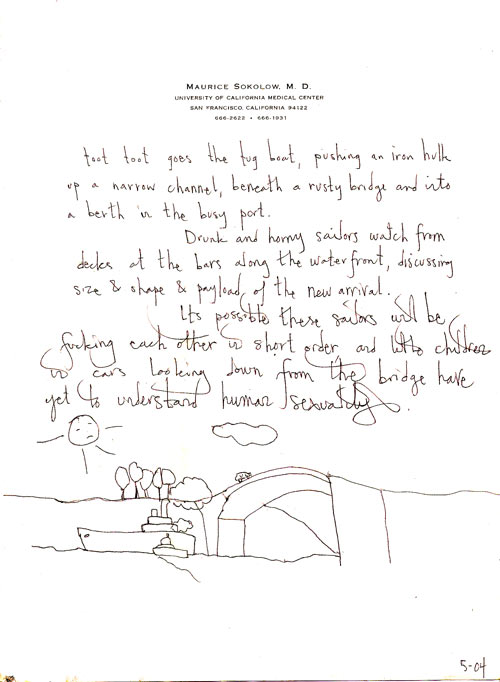 MAURICE SOKOLOW, M. D.
UNIVERSITY OF CALIFORNIA MEDICAL CENTER
SAN FRANCISCO, CALIFORNIA 94122
666-2622 • 666-1931
toot toot goes the tug boat, pushing an iron hulk
up a narrow channel, beneath a rusty bridge and into
a berth in the busy port.
Drunk and horny sailors watch from
decks at the bars along the waterfront, discussing
size & shape & payload of the new arrival.
Its possible these sailors will be
fucking each other in short order and little children
in cars looking down from the bridge have
yet to understand human sexuality.
5-04